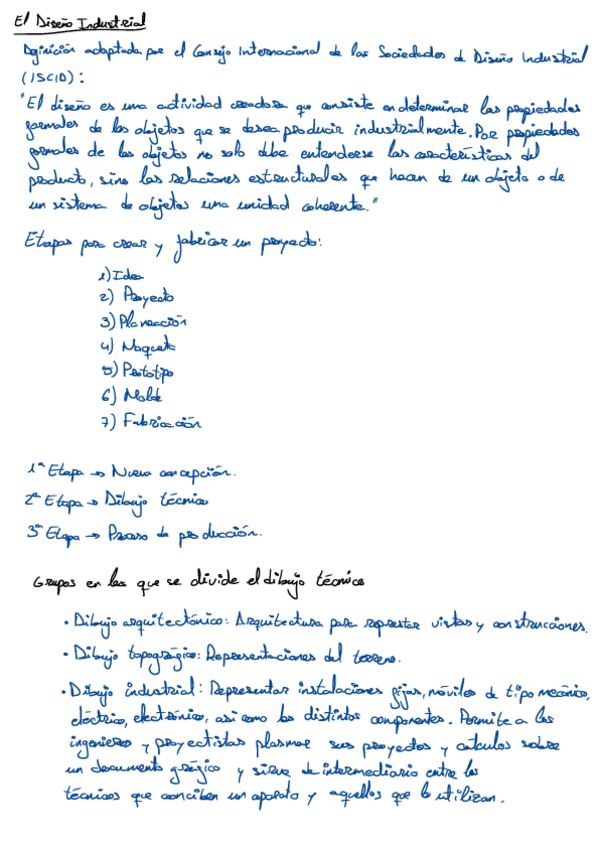 El Diseño Industrial
Definición adoptada por el Consejo Internacional de las Sociedades de Diseño Industrial
(ISCID):
"El diseño es una actividad creadora que consiste en determinar las propiedades
formales de los objetos que se desea producir industrialmente. Por propiedades
formales de los objetos no solo debe entenderse las características del
producto, sino las relaciones estructurales que hacen de un objeto o de
un sistema de objetos una unidad coherente."
Etapas para crear y fabricar un proyecto:
1) Idea
2) Proyecto
3) Planeación
4) Maqueta
5) Prototipo
6) Molde
7) Fabricación
1ª Etapa → Nueva concepción.
2ª Etapa → Dibujo técnico
3ª Etapa → Proceso de producción.
Grupos en los que se divide el dibujo técnico
• Dibujo arquitectónico: Arquitectura para represtar vistas y construcciones.
• Dibujo topográfico: Representaciones del terreno.
• Dibujo industrial: Representar instalaciones fijas, móviles de tipo mecánico,
eléctrico, electrónico, asi como los distintos componentes. Permite a los
ingenieros y proyectistas plasmar sus proyectos y calculos sobre
un documento gráfico y sirve de intermediario entre los
técnicos que conciben un aparato y aquellos que lo utilizan.